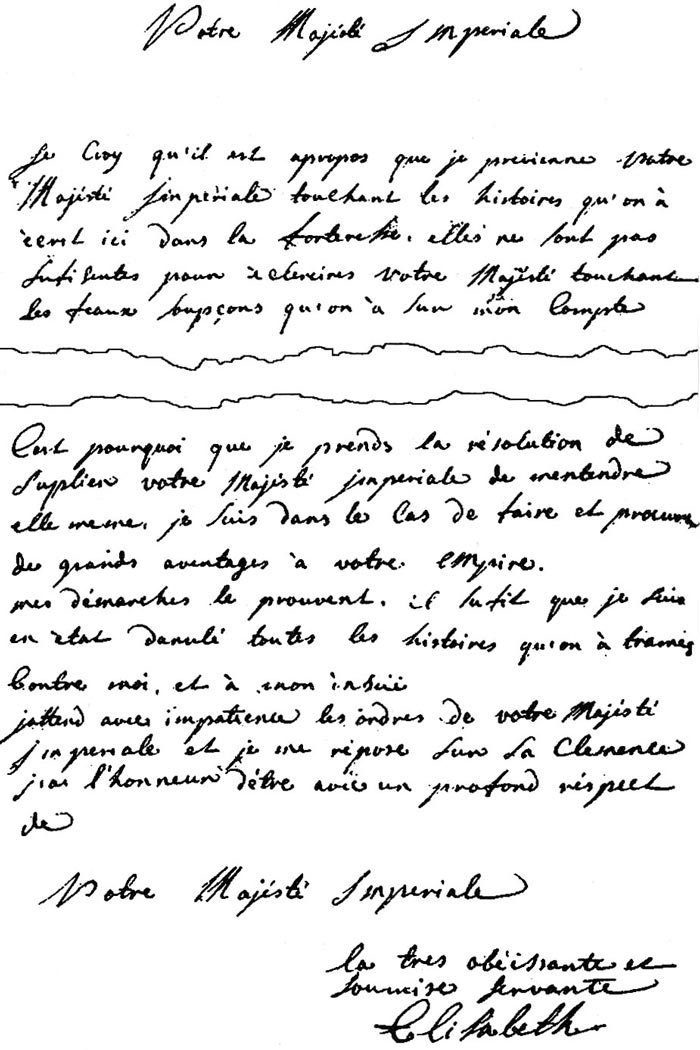 Votre Majésté Imperiale
Je Croy qu'il est apropos que je previenne votre
Majésté Jmperiale touchant les histoires qu'on à
ècrit ici dans la forteresse. elles ne sont pas
sufisentes pour èclercires votre Majesté touchant
les feaux soupsçons qu'on à sur mon Compte
C'est pourquoi que je prends la résolution de
suplier votre Majésté jmperiale de mentendre
elle meme, je suis dans le Cas de faire et procurer
de grands aventages à votre empire.
mes démarches le prouvent. il sufit que je suis
en ètat danulé toutes les histoires qu'on à tramés
Contre moi, et à mon insuii
jattend avec impatience les ordres de votre Majésté
Jmperiale et je me répose sur sa Clemence
j'ai l'honneur d'étre avec un profond réspect
de
Votre Majésté Imperiale
la tres obéissante et
soumise servante
Elisabeth